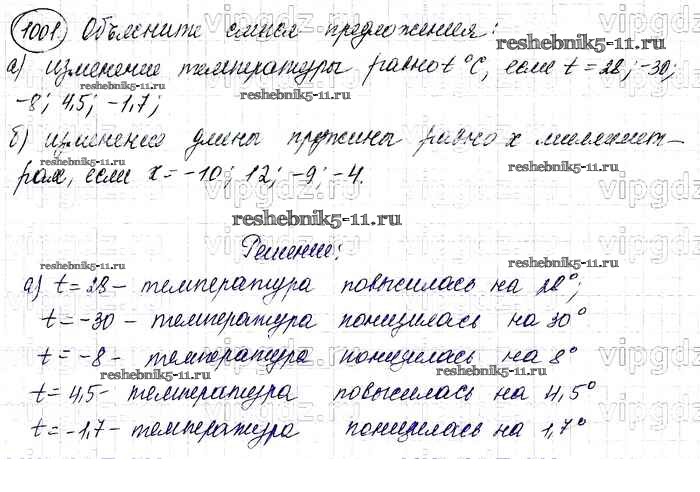 1001. Объясните смысл предложения:
reshebnik5-11.ru
а) изменение температуры равно t °C, если t = 28; -30;
-8; 4,5; -1,7;
reshebnik5-11.ru
б) изменение длины пружины равно x миллимет-
рах, если x = -10; 12; -9; -4.
reshebnik5-11.ru
reshebnik5-11.ru
Решение:
reshebnik5-11.ru
reshebnik5-11.ru
а) t = 28 - температура повысилась на 28°;
t = -30 - температура понизилась на 30°
t = -8 - температура понизилась на 8°
reshebnik5-11.ru
reshebnik5-11.ru
t = 4,5 - температура повысилась на 4,5°
t = -1,7 - температура понизилась на 1,7°
vipgdz.ru